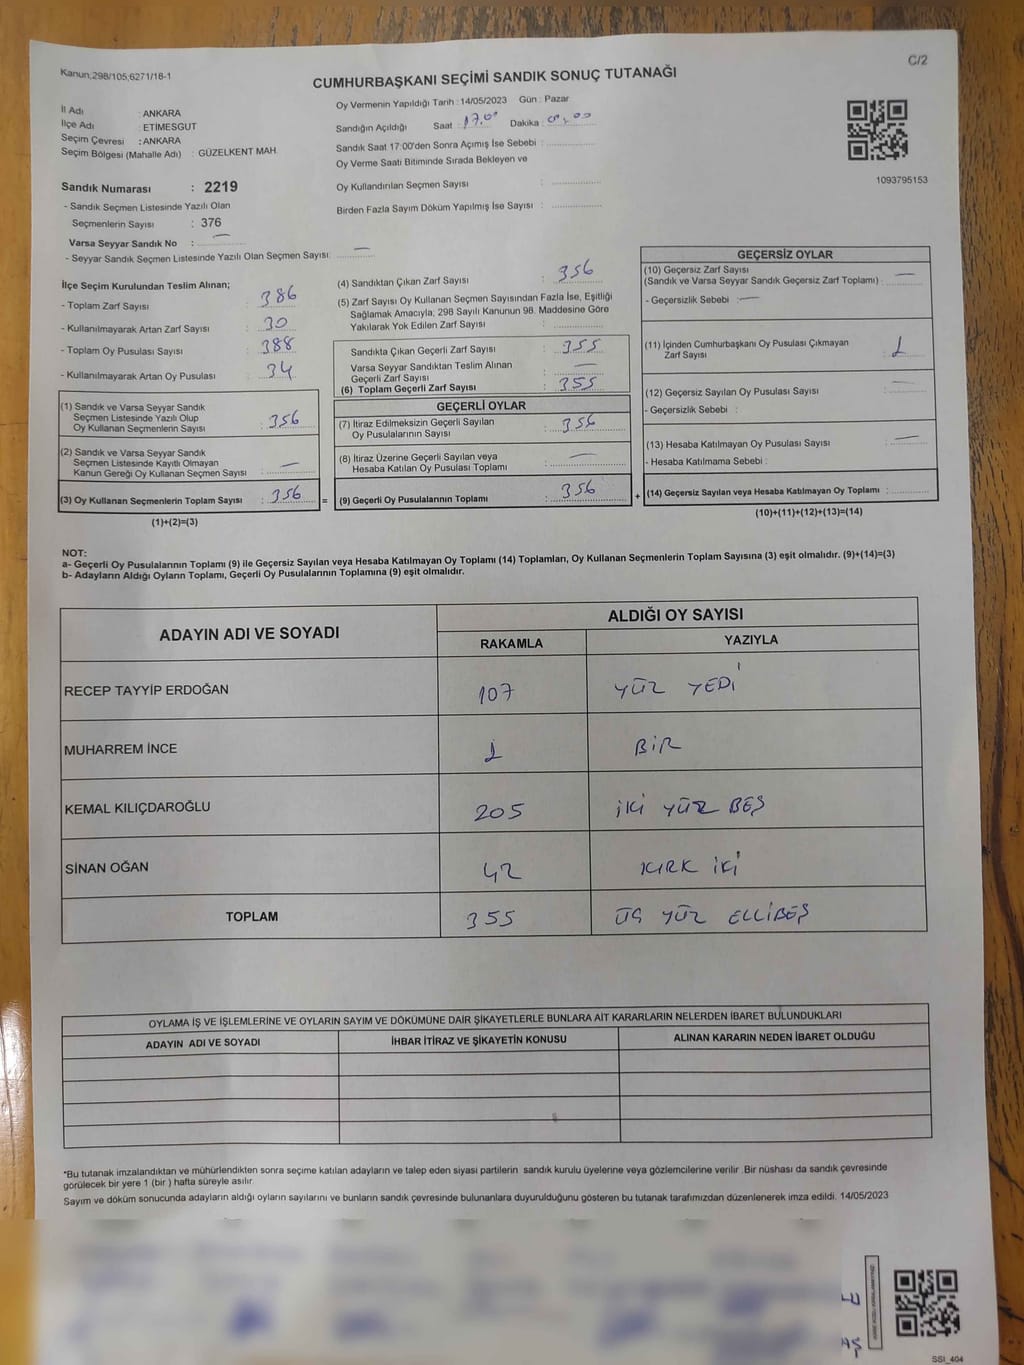 Kanun;298/105;6271/18-1
C/2
CUMHURBAŞKANI SEÇİMİ SANDIK SONUÇ TUTANAĞI
İl Adı : ANKARA
İlçe Adı : ETİMESGUT
Seçim Çevresi : ANKARA
Seçim Bölgesi (Mahalle Adı) : GÜZELKENT MAH.
Sandık Numarası : 2219
- Sandık Seçmen Listesinde Yazılı Olan
Seçmenlerin Sayısı : 376
Varsa Seyyar Sandık No : —
- Seyyar Sandık Seçmen Listesinde Yazılı Olan Seçmen Sayısı: —
Oy Vermenin Yapıldığı Tarih : 14/05/2023 Gün : Pazar
Sandığın Açıldığı Saat : 17.00 Dakika :
Sandık Saat 17:00'den Sonra Açımış İse Sebebi :
Oy Verme Saati Bitiminde Sırada Bekleyen ve
Oy Kullandırılan Seçmen Sayısı :
Birden Fazla Sayım Döküm Yapılmış İse Sayısı :
1093795153
İlçe Seçim Kurulundan Teslim Alınan;
- Toplam Zarf Sayısı : 386
- Kullanılmayarak Artan Zarf Sayısı : 30
- Toplam Oy Pusulası Sayısı : 388
- Kullanılmayarak Artan Oy Pusulası : 34
(1) Sandık ve Varsa Seyyar Sandık
Seçmen Listesinde Yazılı Olup
Oy Kullanan Seçmenlerin Sayısı : 356
(2) Sandık ve Varsa Seyyar Sandık
Seçmen Listesinde Kayıtlı Olmayan
Kanun Gereği Oy Kullanan Seçmen Sayısı : —
(3) Oy Kullanan Seçmenlerin Toplam Sayısı : 356 =
(1)+(2)=(3)
(4) Sandıktan Çıkan Zarf Sayısı : 356
(5) Zarf Sayısı Oy Kullanan Seçmen Sayısından Fazla İse, Eşitliği
Sağlamak Amacıyla, 298 Sayılı Kanunun 98. Maddesine Göre
Yakılarak Yok Edilen Zarf Sayısı :
Sandıkta Çıkan Geçerli Zarf Sayısı : 355
Varsa Seyyar Sandıktan Teslim Alınan
Geçerli Zarf Sayısı : —
(6) Toplam Geçerli Zarf Sayısı : 355
GEÇERLİ OYLAR
(7) İtiraz Edilmeksizin Geçerli Sayılan
Oy Pusulalarının Sayısı : 356
(8) İtiraz Üzerine Geçerli Sayılan veya
Hesaba Katılan Oy Pusulası Toplamı : —
(9) Geçerli Oy Pusulalarının Toplamı : 356 +
GEÇERSİZ OYLAR
(10) Geçersiz Zarf Sayısı
(Sandık ve Varsa Seyyar Sandık Geçersiz Zarf Toplamı) : —
- Geçersizlik Sebebi : —
(11) İçinden Cumhurbaşkanı Oy Pusulası Çıkmayan
Zarf Sayısı : 1
(12) Geçersiz Sayılan Oy Pusulası Sayısı : —
- Geçersizlik Sebebi :
(13) Hesaba Katılmayan Oy Pusulası Sayısı : —
- Hesaba Katılmama Sebebi :
(14) Geçersiz Sayılan veya Hesaba Katılmayan Oy Toplamı :
(10)+(11)+(12)+(13)=(14)
NOT:
a- Geçerli Oy Pusulalarının Toplamı (9) ile Geçersiz Sayılan veya Hesaba Katılmayan Oy Toplamı (14) Toplamları, Oy Kullanan Seçmenlerin Toplam Sayısına (3) eşit olmalıdır. (9)+(14)=(3)
b- Adayların Aldığı Oyların Toplamı, Geçerli Oy Pusulalarının Toplamına (9) eşit olmalıdır.
ADAYIN ADI VE SOYADI
ALDIĞI OY SAYISI
RAKAMLA YAZIYLA
RECEP TAYYİP ERDOĞAN 107 YÜZ YEDİ
MUHARREM İNCE 1 BİR
KEMAL KILIÇDAROĞLU 205 İKİ YÜZ BEŞ
SİNAN OĞAN 42 KIRK İKİ
TOPLAM 355 ÜÇ YÜZ ELLİBEŞ
OYLAMA İŞ VE İŞLEMLERİNE VE OYLARIN SAYIM VE DÖKÜMÜNE DAİR ŞİKAYETLERLE BUNLARA AİT KARARLARIN NELERDEN İBARET BULUNDUKLARI
ADAYIN ADI VE SOYADI İHBAR İTİRAZ VE ŞİKAYETİN KONUSU ALINAN KARARIN NEDEN İBARET OLDUĞU
*Bu tutanak imzalandıktan ve mühürlendikten sonra seçime katılan adayların ve talep eden siyasi partilerin sandık kurulu üyelerine veya gözlemcilerine verilir. Bir nüshası da sandık çevresinde
görülecek bir yere 1 (bir ) hafta süreyle asılır.
Sayım ve döküm sonucunda adayların aldığı oyların sayılarını ve bunların sandık çevresinde bulunanlara duyurulduğunu gösteren bu tutanak tarafımızdan düzenlenerek imza edildi. 14/05/2023
SSI_404